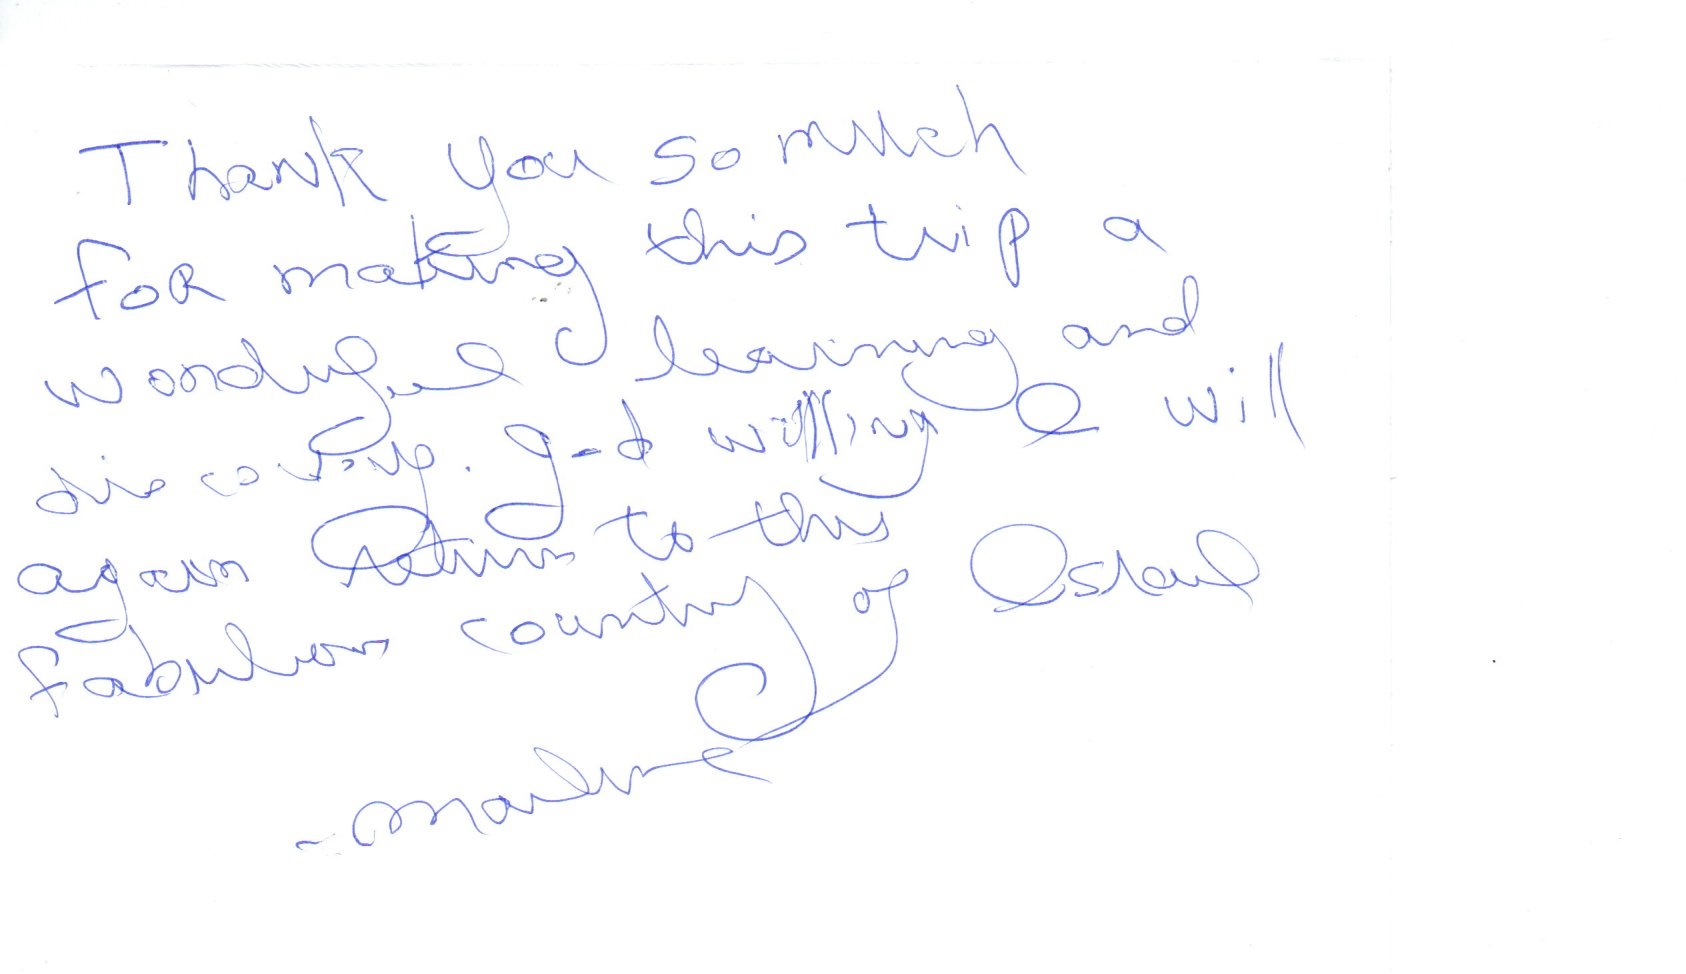 Thank you so much
for making this trip a
wonderful learning and
discovery. G-d willing I will
again return to this
fabulous country of Israel
- Marlene